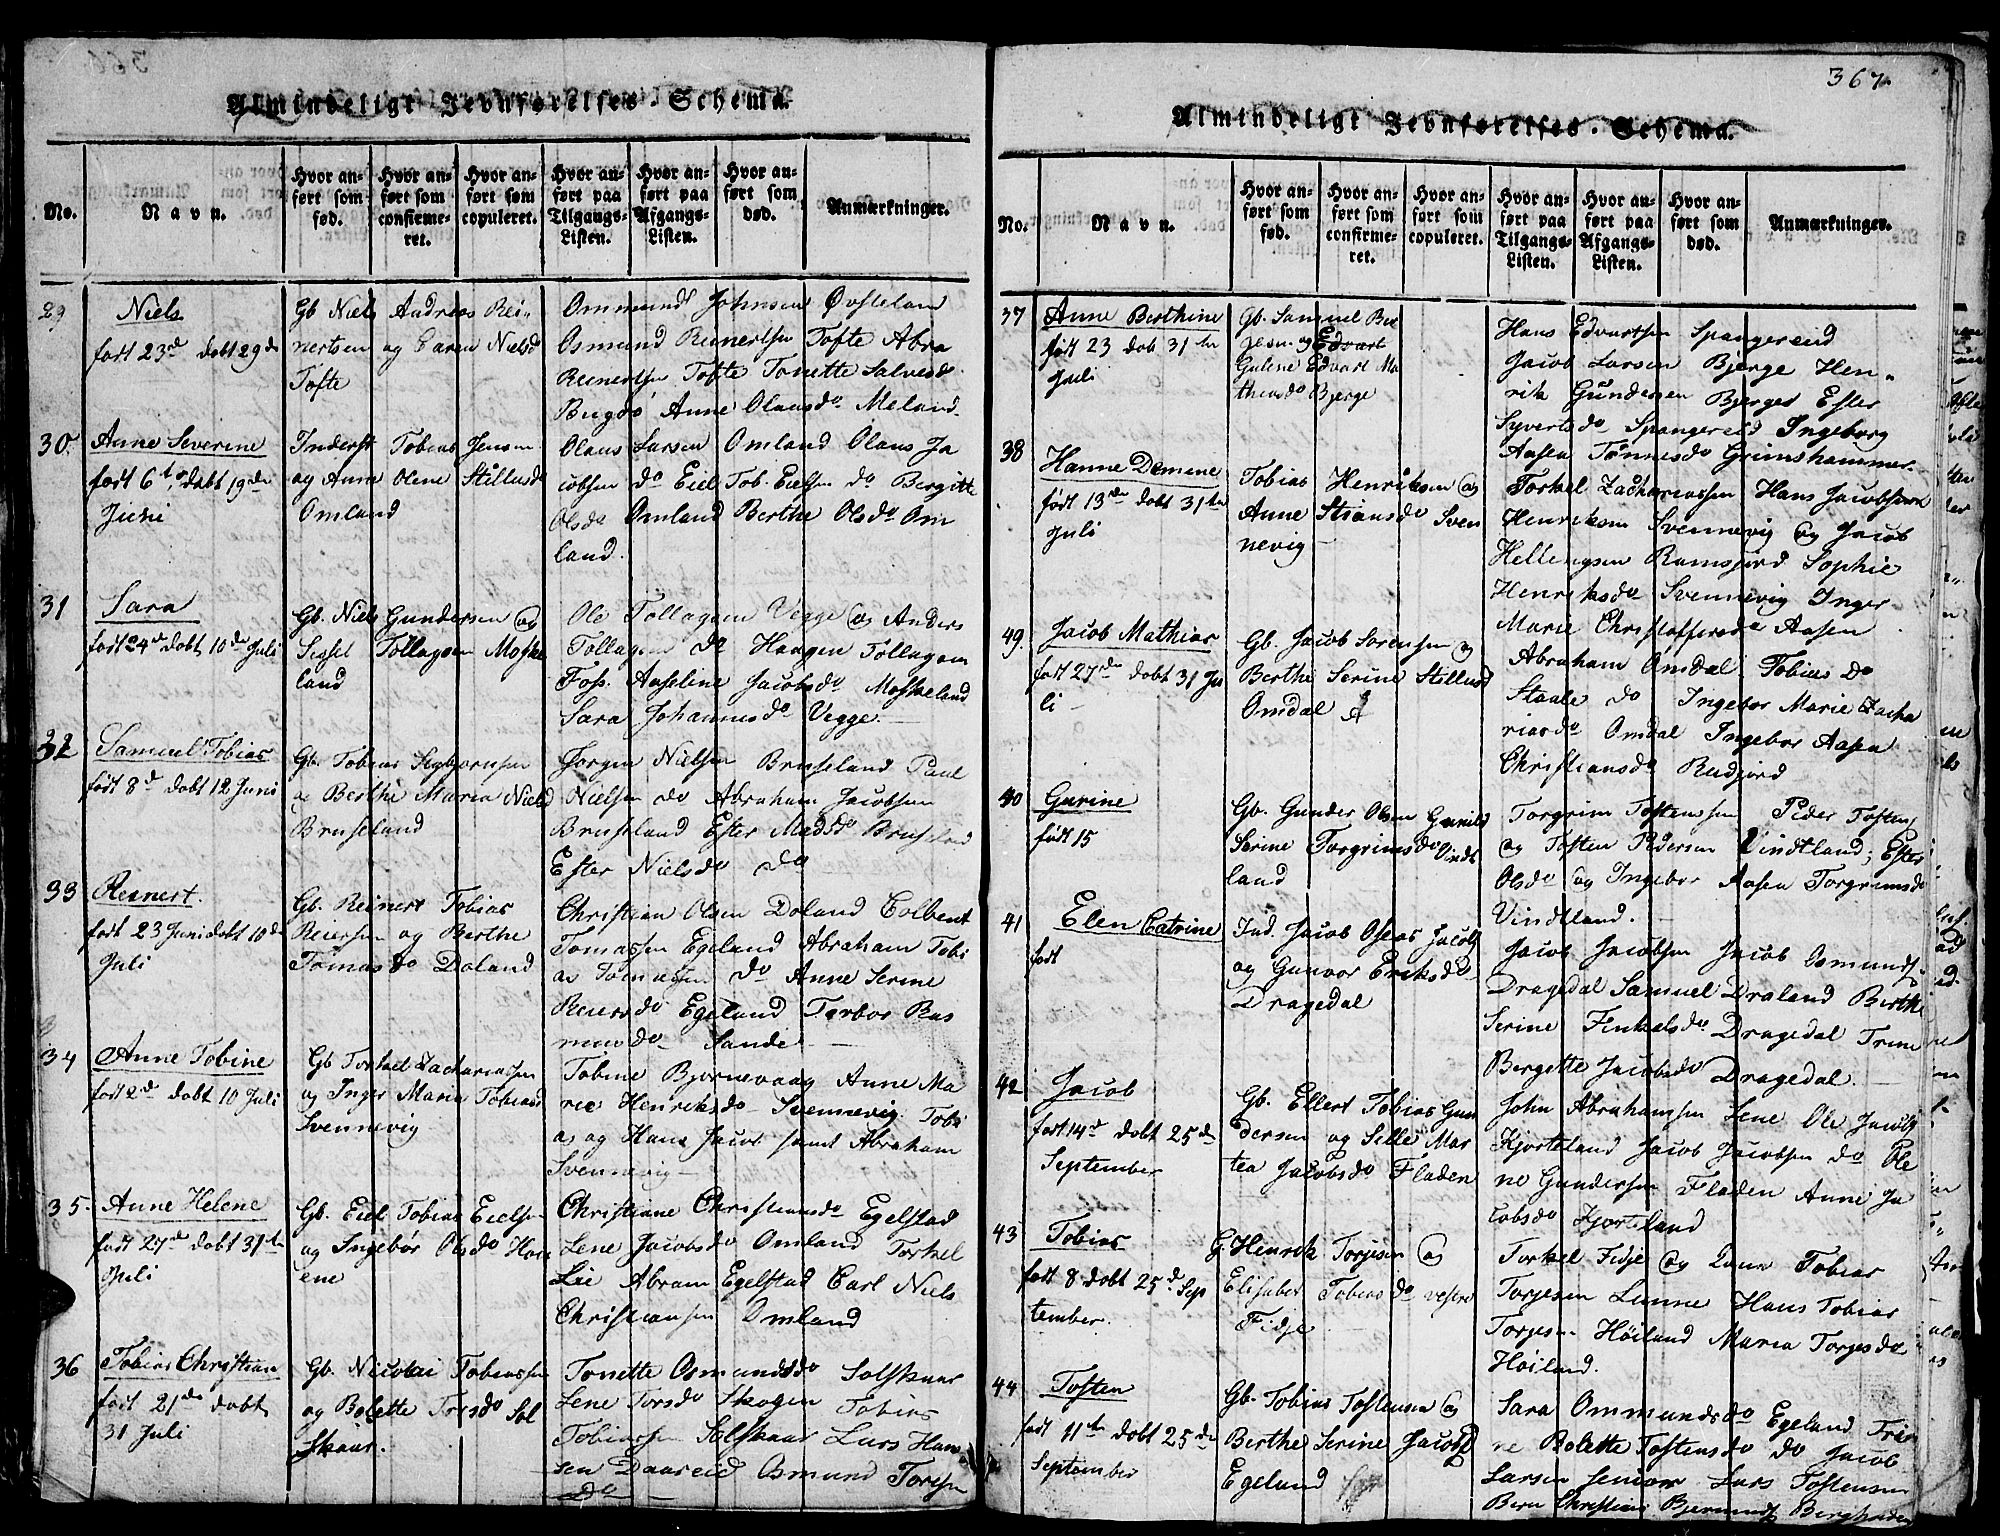 Almindeligt Jevnførelses-Schema.
No.
Navn.
Hvor anført som fød.
Hvor anført som confirmeret.
Hvor anført som copuleret.
Hvor anført paa Tilgangs-Listen.
Hvor anført paa Afgangs-Listen.
Hvor anført som død.
Anmærkninger.
29
Niels
født 23de døbt 29de
Gb Niels Andreas Rei-
nertsen og Caren Nielsd
Tofte
Ommund Johnsen Øvsteland
Osmund Reinertsen Tofte Abra
Reinertsen Tofte Tonette Salvesdo
Bugdö Anne Olausdo Meland.
30.
Anne Severine
født 6te døbt 19de
Inderst Tobias Jensen
og Anne Olene Stillusd
Omland
Olaus Larsen Omland Olaus Ja
cobsen do Eiel Tob. Eielsen do Bergitte
Olsdo Omland Berthe Olsdo Om
land.
31
Sara
født 24de døbt 10de Juli
Gb. Niels Gundersen og
Sissel Tollagsen Moske
land
Ole Tollagsen Vegge og Anders
Tollagsen do Haagen Tollagsen
Foss. Aaseline Jacobsdo Moskeland
Sara Johannesdo Vegge.
32
Samuel Tobias
født 8de døbt 12 Juni
Gb. Tobias Sigbjørnsen
og Berthe Maria Nielsd
Bruseland
Jørgen Nielsen Bruseland Paul
Nielsen do Abraham Jacobsen
Bruseland Ester Madsdo Bruseland
Ester Nielsdo do
33
Reinert.
født 23 Juni døbt 10de
Juli
Gb. Reinert Tobias
Reiersen og Berthe
Tomasdo Doland
Christian Olsen Doland Colbent
Tomassen Egeland Abraham Tobi
as Tomassen do Anne Serine
Reiersdo Egeland Torbor Ras
musdo Sande
34
Anne Tobine
født 2de døbt 10 Juli
Gb Torkel Zachariassen
og Inger Maria Tobiasd
Svennevig
Tobine Bjørnevaag Anne Ma
rie Henriksdo Svennevig. Tobi
as og Hans Jacob samt Abraham
Svennevig
35.
Anne Helene
født 27de døbt 31te
Juli
Gb. Eiel Tobias Eielsen
og Ingebør Olsdo
ene
Christiane Christiansdo Egelstad
Lene Jacobsdo Omland Torkel
Lie Abram Egelstad Carl Niels
Christiansen Omland
36
Tobias Christian
født 21de døbt
31 Juli
Gb. Nicolai Tobiassen
og Bolette Torsdo Sol
skaar.
Tonette Osmundsdo Solskaar
Lene Torsdo Skogen Tobias
Tobiassen Solskaar Lars Han
sen Daareid Osmund Torsen
do
367.
Almindeligt Jevnførelses-Schema.
No.
Navn.
Hvor anført som fød.
Hvor anført som confirmeret.
Hvor anført som copuleret.
Hvor anført paa Tilgangs-Listen.
Hvor anført paa Afgangs-Listen.
Hvor anført som død.
Anmærkninger.
37
Anne Berthine
født 23 døb 31te
Juli
Gb. Samuel Ber
gesen og Edvart
Gulene Edvart Ma
theusdo Bjerge
Hans Edvartsen Spangereid
Jacob Larsen Bjerge Hen-
rik Gundersen Bjerges Ester
Syvertsdo Spangereid Ingeborg
Aasen Tönnesdo Grimshammer
38
Hanne Demine
født 13de døbt 31te
Juli
Tobias Henriksen og
Anne Stiansdo Sven
nevig
Torkel Zachariassen Hans Jacobsen
Henriksen Svennevig og Jacob
Hellengsen Ramsfjord Sophie
Henriksdo Svennevig Inger
Marie Christoffersdo Aasen
49.
Jacob Mathias
født 27de døbt 31 Ju
li
Gb. Jacob Sorensen og
Berthe Serine Stillusd
Omdal
Abraham Omdal Tobias do
Staale do Ingebor Marie Zacha
riasdo Omdal Ingebor Aasen
Christiansdo Rudjord
40
Gurine
født 15
Gb. Gunder Olsen Gunild
Serine Torgrimsdo Vindt
land
Torgrim Tostensen Peder Tosten
og Tosten Pedersen Vindtland; Ester
Olsdo og Ingebor Aasen Torgrimsdo
Vindtland.
41
Elen Catrine
født
Ind. Jacob Oseas Jacobs
og Gunvor Eriksdo
Dragedal
Jacob Jacobsen Jacob Osmunds
Dragedal Samuel Draland Berthe
Serine Finkelsdo Dragedal Trine
Bergette Jacobsdo Dragedal.
42
Jacob
født 14de døbt 25de
September
Gb. Ellert Tobias Gun
dersen og Sille Mar
tea Jacobsdo Fladen
John Abrahamsen Lene Ole Jacobs
Kjorteland Jacob Jacobsen do Ole
ne Gundersen Fladen Anne Ja
cobsdo Kjorteland
43
Tobias
født 8 døbt 25de Sep
tember.
G. Henrik Torjesen og
Elisabet Tobiasdo vestre
Fidje
Torkel Fidje og Lars Tobias
Torjesen Lunne Hans Tobias
Torjesen Höiland Maria Torjesdo
Höiland.
44
Tosten
født 11te døbt 25de
September
Gb. Tobias Tostensen og
Berthe Serine Jacobsd
Egeland
Sara Ommundsdo Egeland Trin
ne Bolette Tostensdo do Jacob
Larsen senior Lars Tostensen
Bern Christians Bjermunds